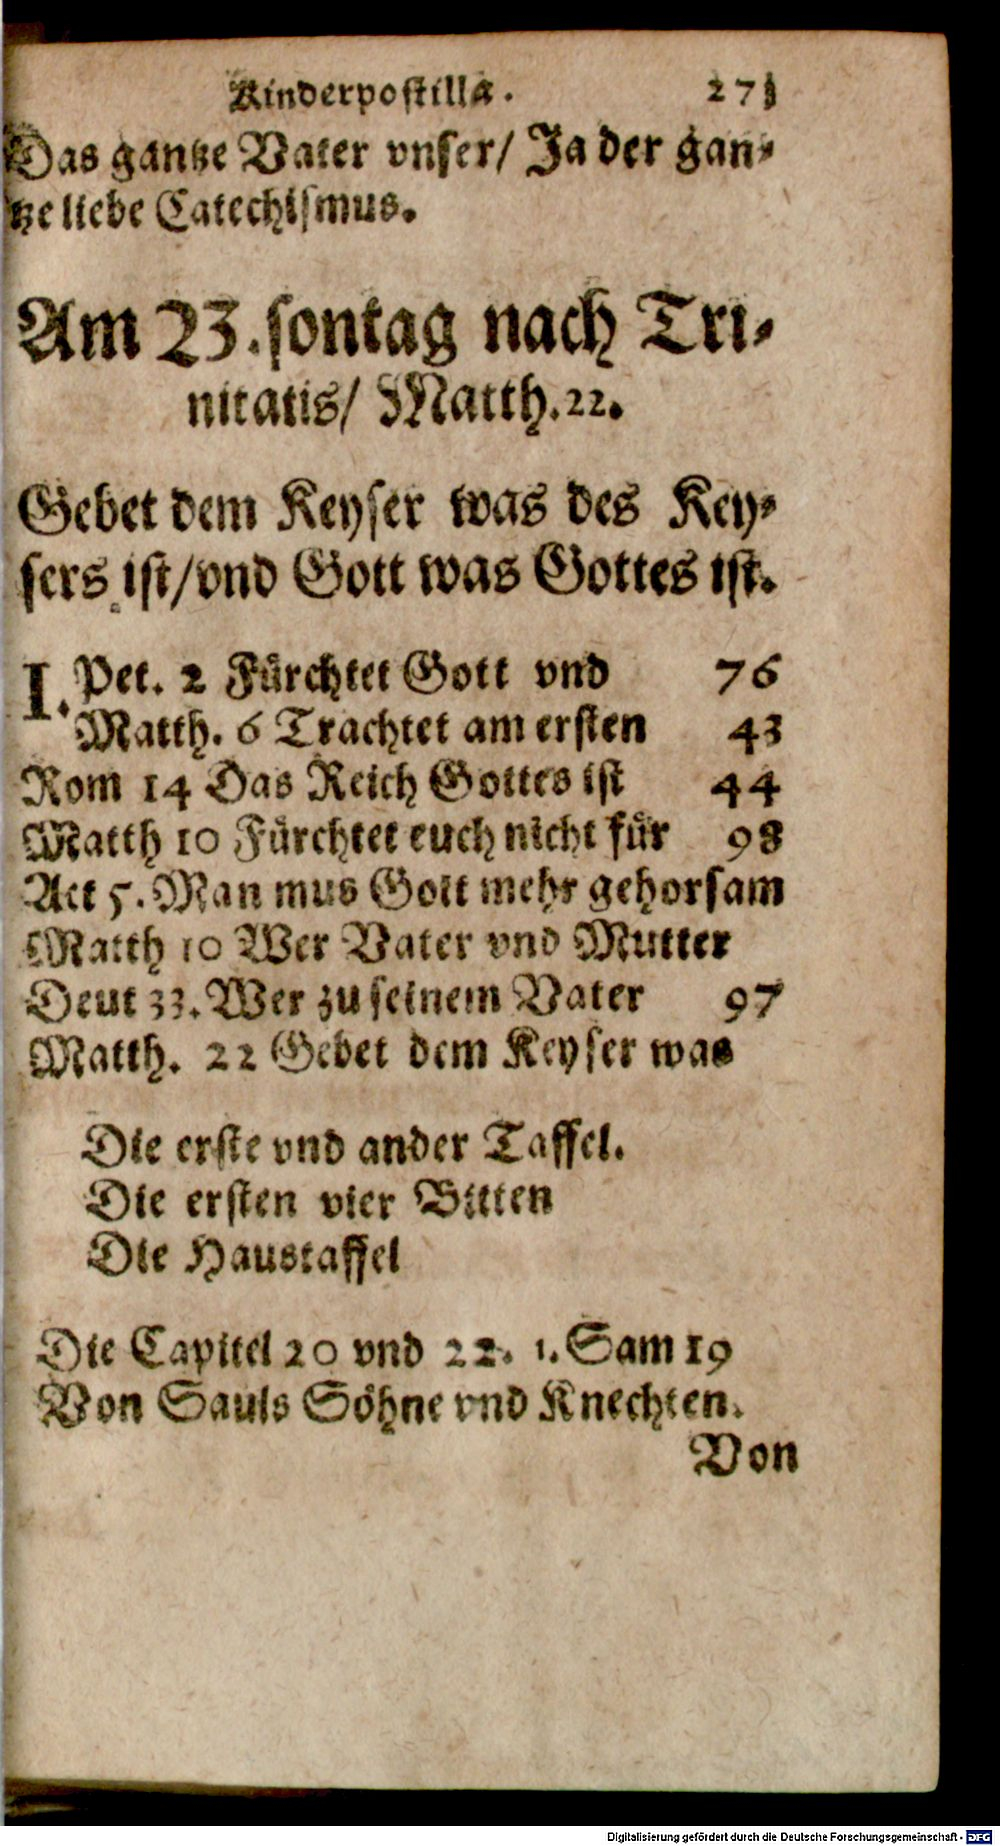 Kinderpostilla. 273
Das gantze Vater vnser/ Ja der gan-
tze liebe Catechismus.
Am 23. sontag nach Tri-
nitatis/ Matth. 22.
Gebet dem Keyser was des Key-
sers ist/ vnd Gott was Gottes ist.
1. Pet. 2 Fürchtet Gott vnd 76
Matth. 6 Trachtet am ersten 43
Rom 14 Das Reich Gottes ist 44
Matth 10 Fürchtet euch nicht für 98
Act 5. Man mus Gott mehr gehorsam
Matth 10 Wer Vater vnd Mutter
Deut 33. Wer zu seinem Vater 97
Matth. 22 Gebet dem Keyser was
Die erste vnd ander Taffel.
Die ersten vier Bitten
Die Haustaffel
Die Capitel 20 vnd 22. 1. Sam 19
Von Sauls Söhne vnd Knechten.
Von
Digitalisierung gefördert durch die Deutsche Forschungsgemeinschaft - DFG